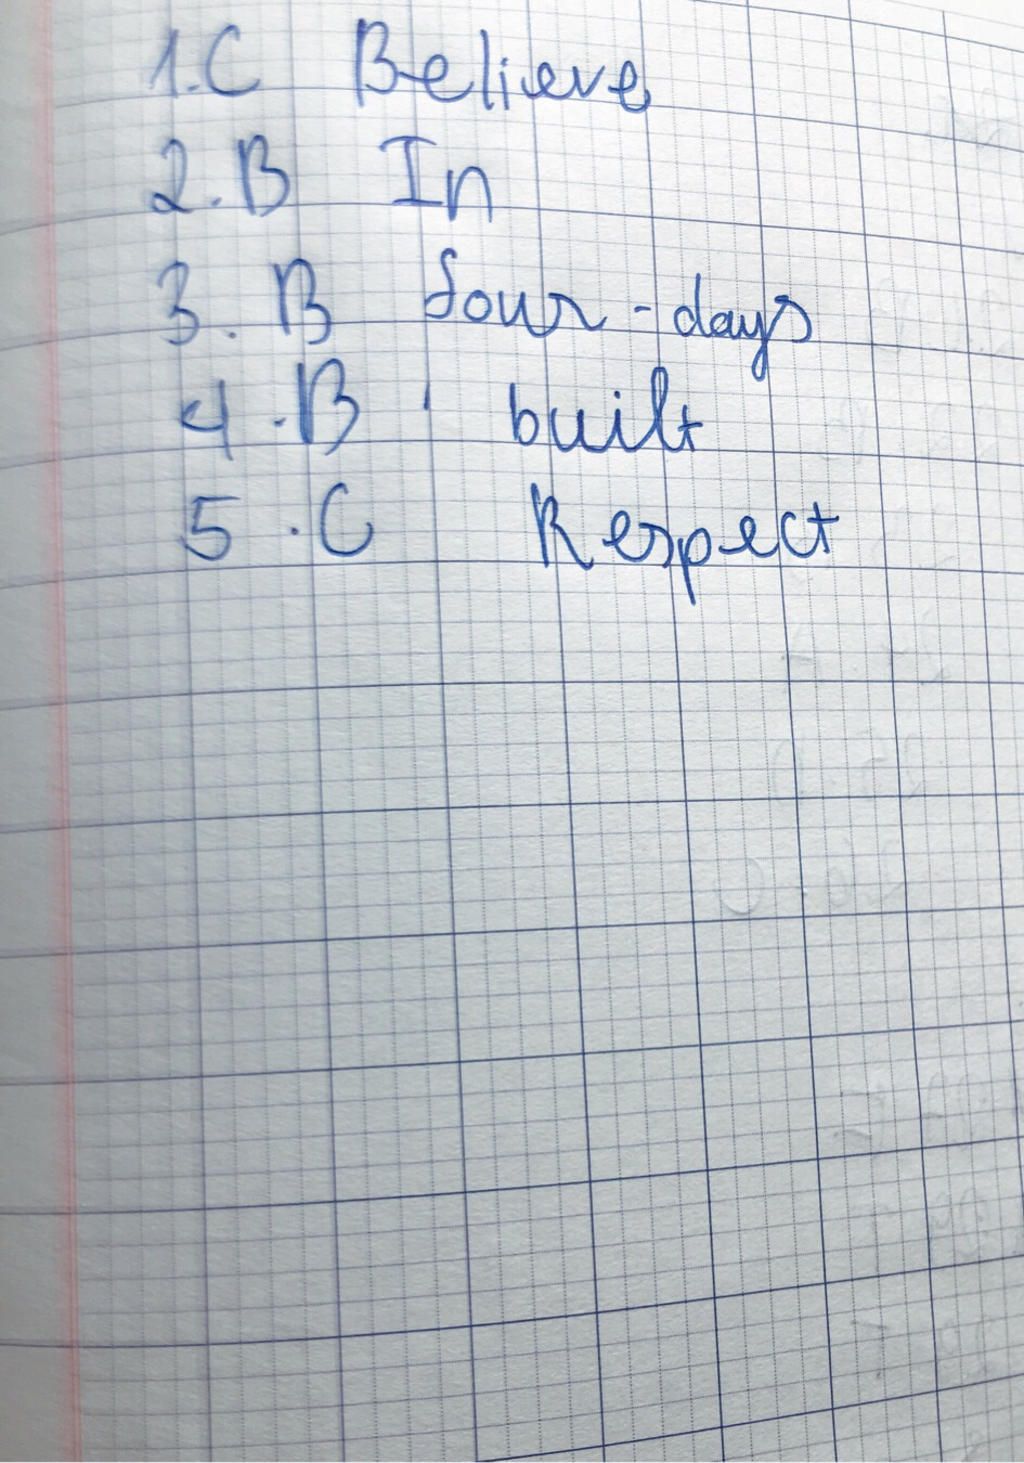 1.C Believe
2.B In
3.B four-days
4.B built
5.C Respect